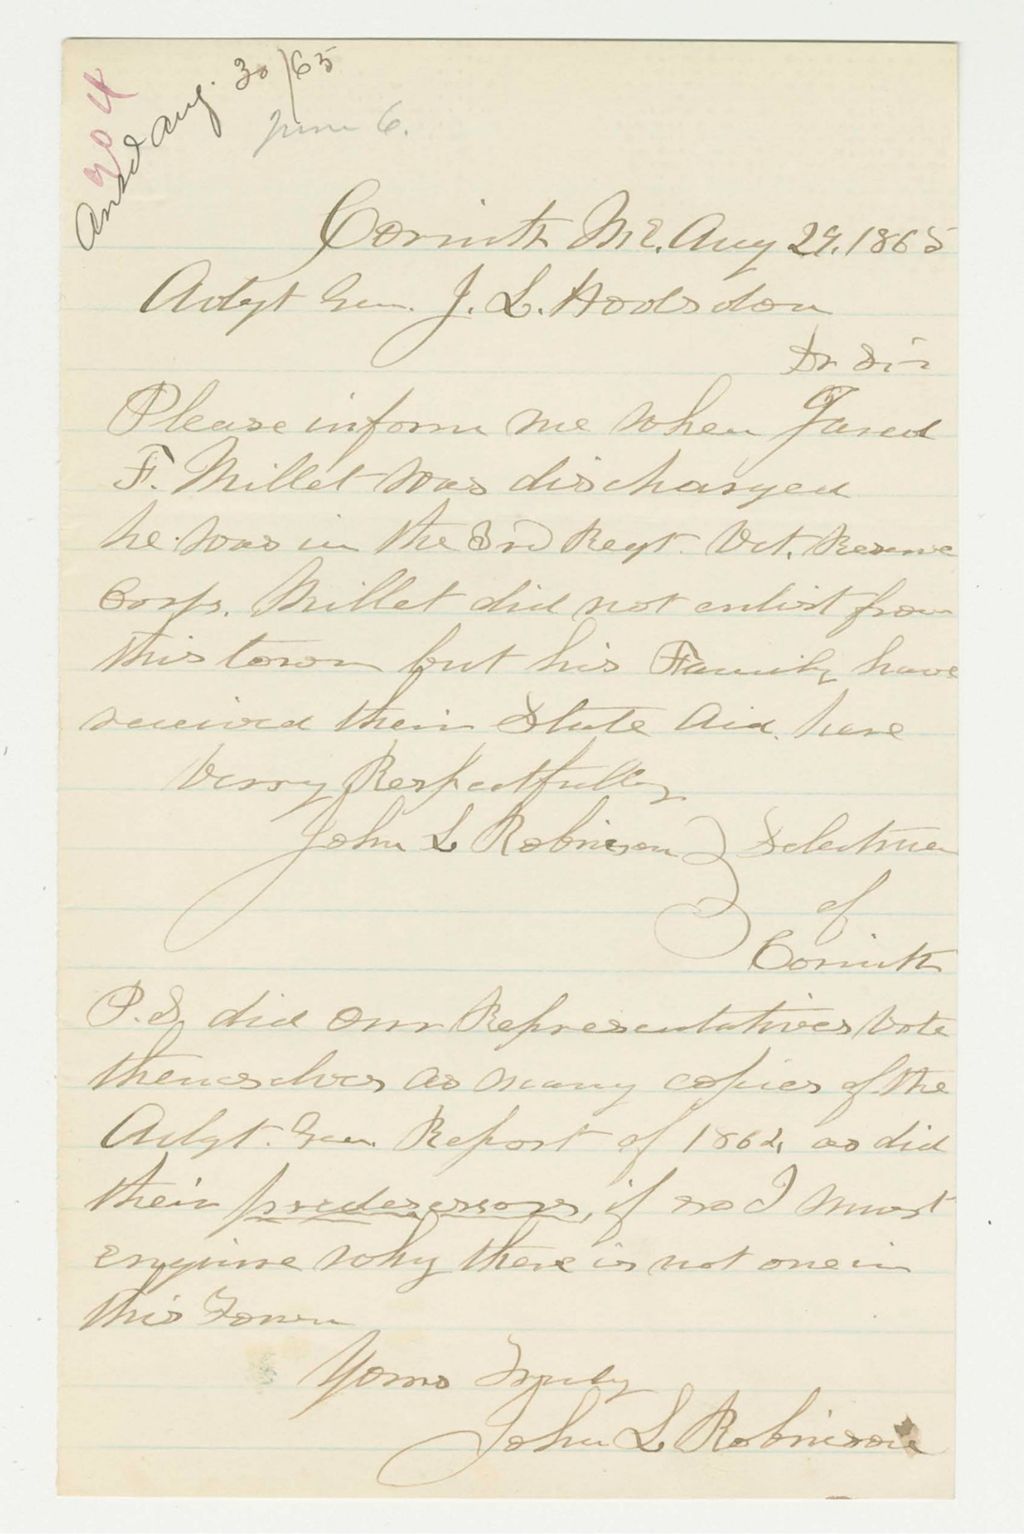 204
Ansd Aug. 30/65
June 6.
Corinth Me. Aug 29, 1865
Adgt Gen. J. L. Hodsdon
Dr Sir
Please inform me when Jared
F. Millet was discharged
he was in the 3rd Regt. Vet. Reserve
Corps. Millet did not enlist from
this town but his Family have
received their State Aid. here
Verry Respectfully
John L Robinson } Selectmen
of
Corinth
P.S. did our Representatives vote
themselves as many copies of the
Adgt. Gen Report of 1864 as did
their predesessors, if so I must
enquire why there is not one in
this Town
Yours Truly
John L Robinson